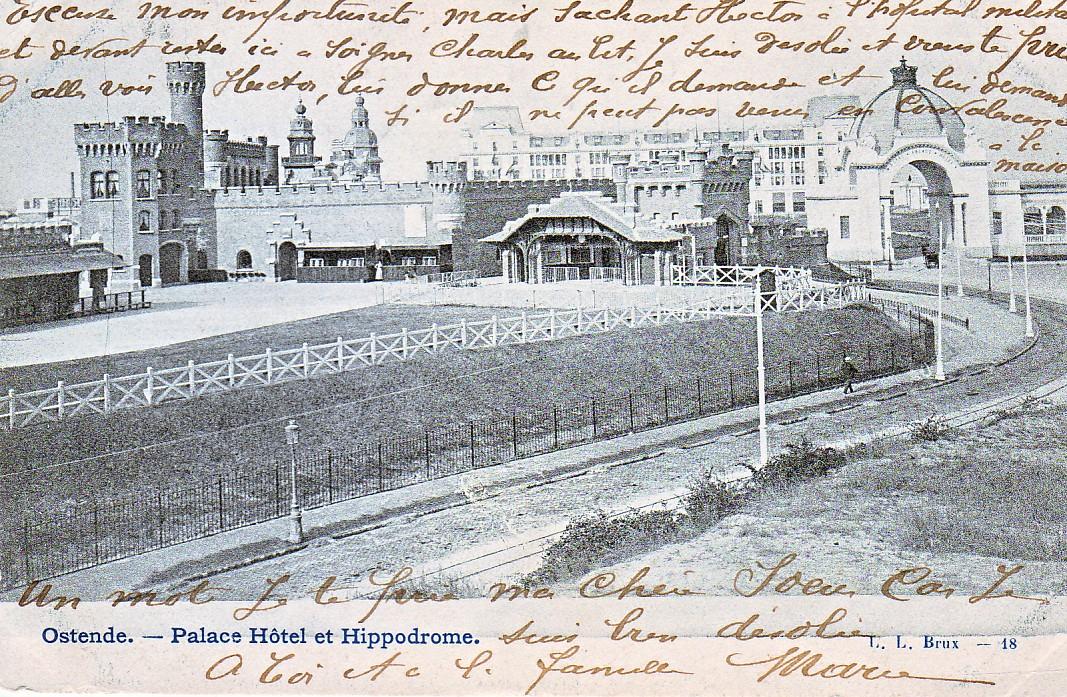 Escuse mon importunité, mais sachant Hector à l'hopital milita
et devant rester ici a soigner Charles au lit, Je suis desolée et viens te prie
D'aller voir Hector, lui donner C qu il demande et lui demand
si il ne peut pas venir en Convalescence
a la
maiso
Un mot Je te prie ma Chère Soeur Car Je
Ostende. — Palace Hôtel et Hippodrome.
suis bien désolée
L. L. Brux — 18
A toi et a la famille Marie